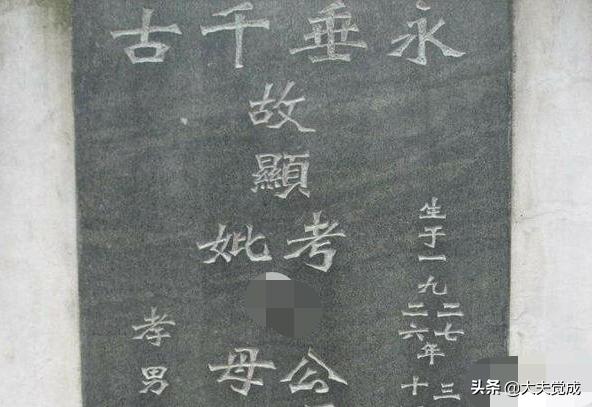 永垂千古
生于一九
二七
二六
年
三
十
故顯
考
妣
公
母
孝男
头条 @大夫觉成